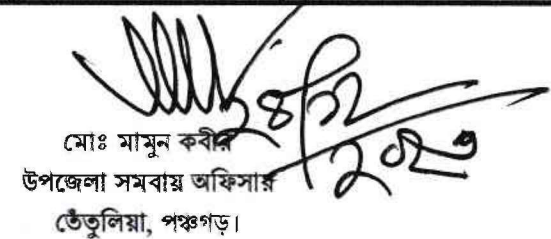 মোঃ মামুন কবীর
উপজেলা সমবায় অফিসার
তেঁতুলিয়া, পঞ্চগড়।